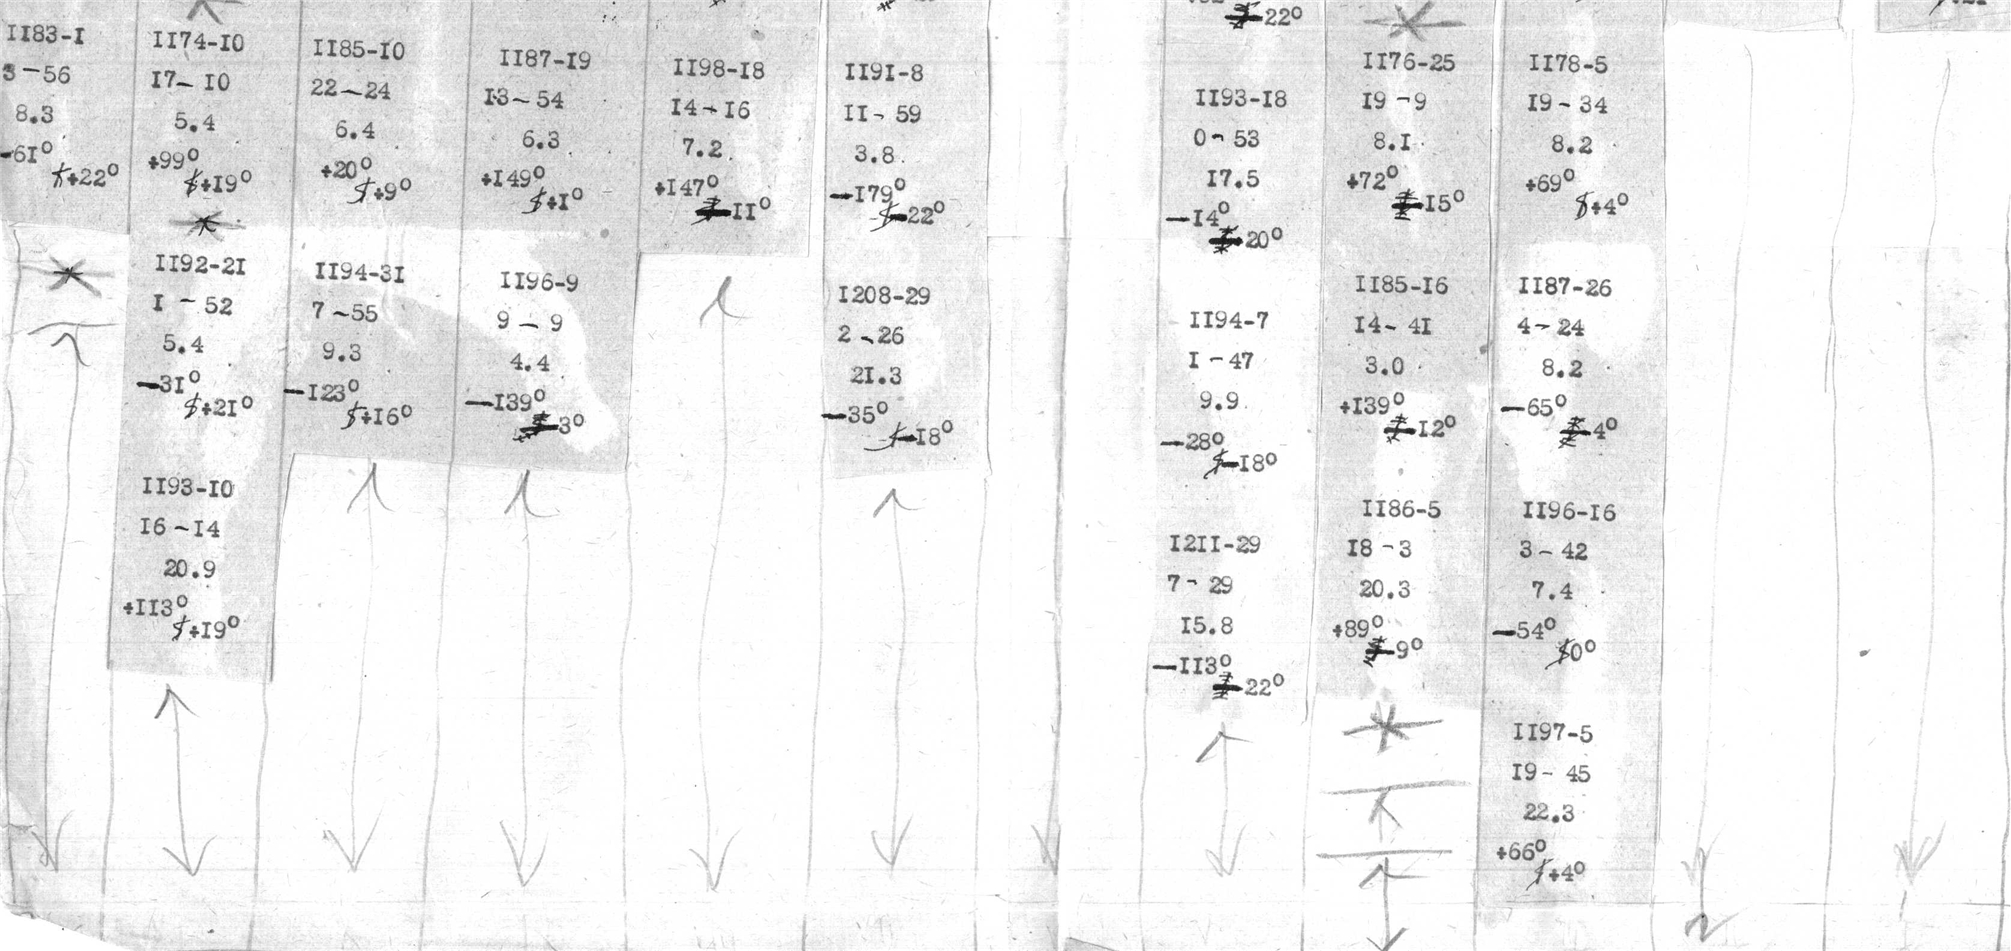 II83-I
3-56
8.3
-6I°
$+22°
II74-I0
I7-I0
5.4
+99°
$+I9°
II92-2I
I-52
5.4
-3I°
$+2I°
II93-I0
I6-I4
20.9
+II3°
$+I9°
II85-I0
22-24
6.4
+20°
$+9°
II94-3I
7-55
9.3
-I23°
$+I6°
II87-I9
I3-54
6.3
+I49°
$+I°
II96-9
9-9
4.4
-I39°
$-3°
II98-I8
I4-I6
7.2
+I47°
$-II°
II9I-8
II-59
3.8
-I79°
$-22°
I208-29
2-26
2I.3
-35°
$-I8°
$-22°
II93-I8
0-53
I7.5
-I4°
$-20°
II94-7
I-47
9.9
-28°
$-I8°
I2II-29
7-29
I5.8
-II3°
$-22°
II76-25
I9-9
8.I
+72°
$-I5°
II85-I6
I4-4I
3.0
+I39°
$-I2°
II86-5
I8-3
20.3
+89°
$-9°
II78-5
I9-34
8.2
+69°
$+4°
II87-26
4-24
8.2
-65°
$-4°
II96-I6
3-42
7.4
-54°
$0°
II97-5
I9-45
22.3
+66°
$+4°